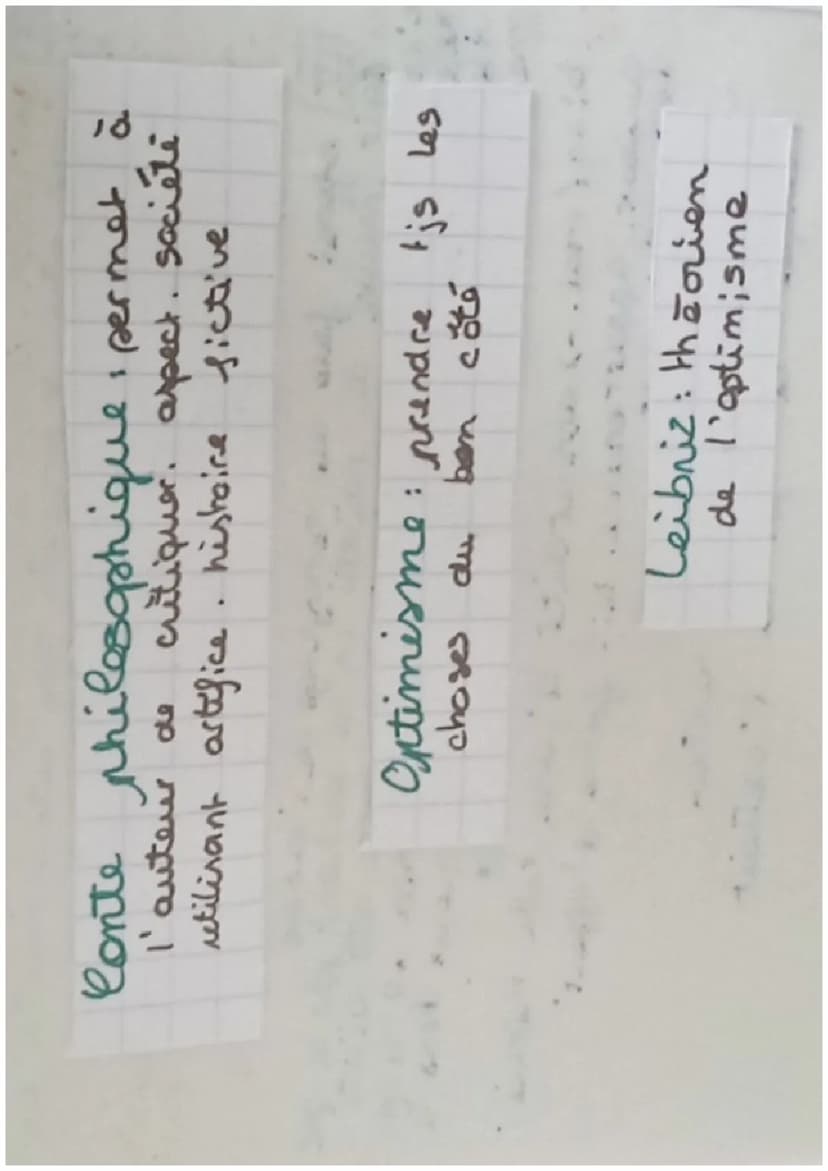 Conte philosophique : permet à
l'auteur de critiquer. aspect. société
utilisant artifice. histoire fictive
Optimisme : prendre tjs les
choses du bon côté
Leibniz : théorien
de l'optimisme